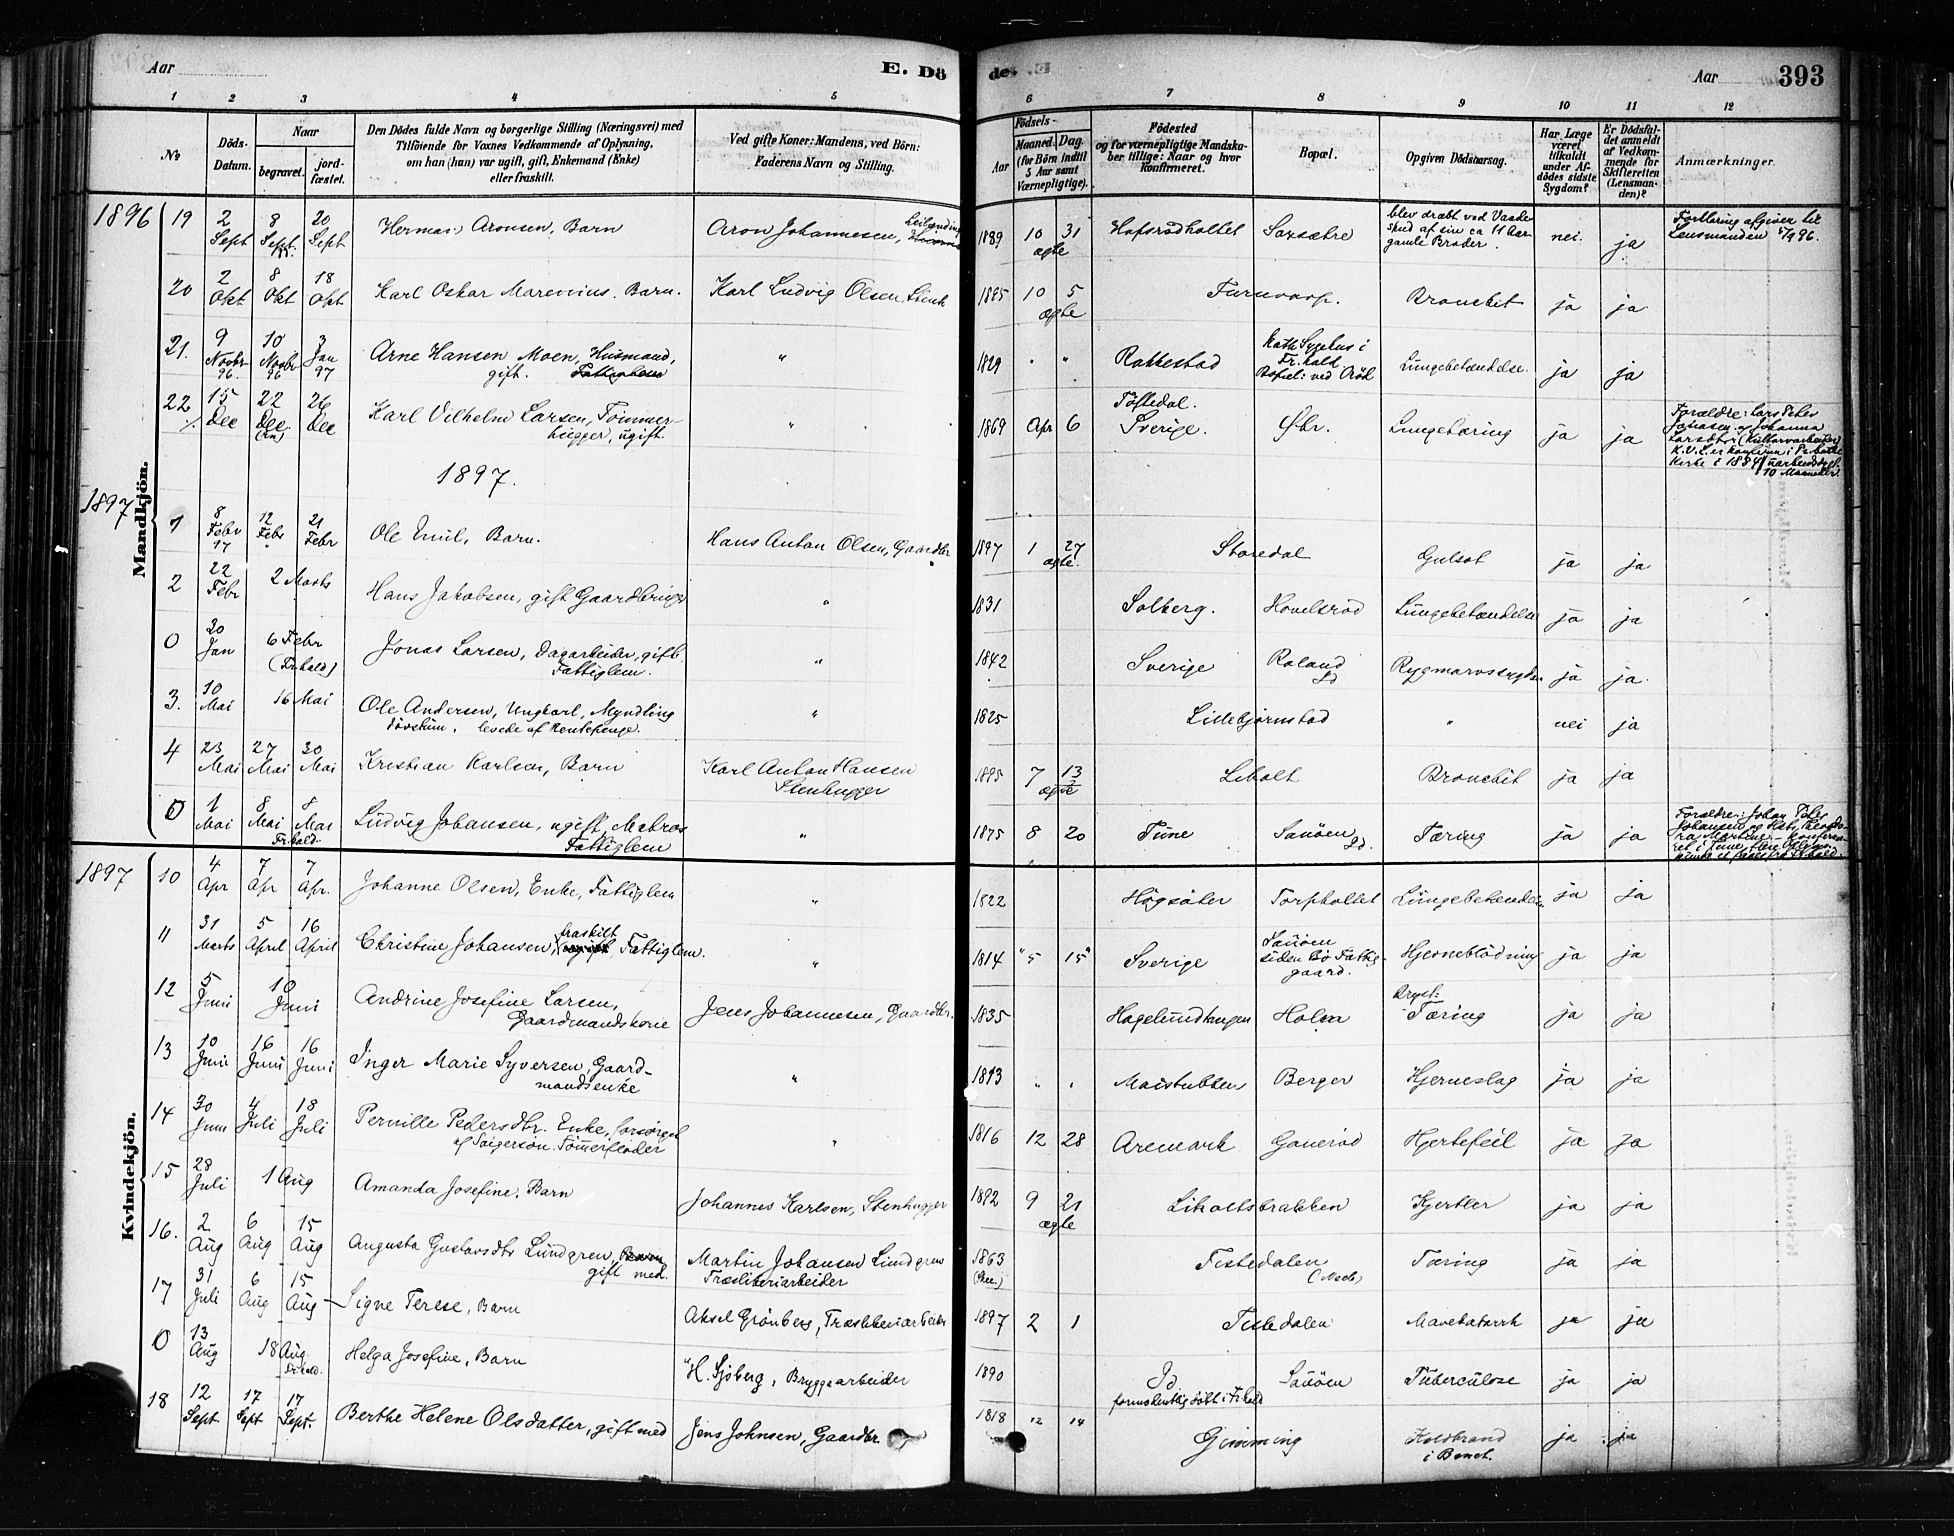 Aar
E. Dö
de. E.
Aar
393
1 2 3 4 5 6 7 8 9 10 11 12
No
Döds-Datum.
Naar
begravet.
jord-fæstet.
Den Dödes fulde Navn og borgerlige Stilling (Næringsvei) med
Tilföiende for Voxnes Vedkommende af Oplysning,
om han (hun) var ugift, gift, Enkemand (Enke)
eller fraskilt.
Ved gifte Koner: Mandens, ved Börn:
Faderens Navn og Stilling.
Födsels-
Aar
Maaned. Dag.
(for Börn indtil
5 Aar samt
Værnepligtige).
Födested
og for værnepligtige Mandska-
ber tillige: Naar og hvor
konfirmeret.
Bopæl.
Opgiven Dödsaarsag.
Har Læge
været
tilkaldt
under Af-
dödes sidste
Sygdom?
Er Dödsfal-
det anmeldt
af Vedkom-
mende for
Skifteretten
(Lensman-
den)?
Anmærkninger.
Mandkjön.
1896 19 2 Sept 8 Sept. 20 Sept Aronsen, Barn Aron Johannesen, 1889 10 31 ægte Hafsrödholtet Saxsætre blev dræbt ved Vaade
skud af sin ca 11 Aar
gamle Broder. nei. ja Forklaring afgiven til
Lensmanden 96.
20 2 Okt 8 Okt 18 Okt Karl Oskar Marenius. Barn. Karl Ludvig Olsen, Stenh 1895 10 5 ægte Bronchit ja ja
21. 9 Novbr 96. 10 Novbr 96 3 Jan 97 Arne Hansen Moen, Husmand, gift. Fattiglem " 1829 " " Rakkestad Kath Sygehus i
Fr.hald
Bopæl: ved Lungebetændelse. ja ja
22 15 Dec 22 Dec 26 Dec Karl Vilhelm Larsen, Tömmer-
hugger, ugift. " 1869 Apr 6 Töftedal.
Sverige. Lungetæring ja ja Forældre: Lars Peter
1897.
1897 1 8 Febr 97 12 Febr 21 Febr Ole Emil, Barn. Hans Anton Olsen, Gaardbr 1897 1 27 ægte. Staredal Gulsot ja ja
2 22 Febr 2 Marts Hans Jakobsen, gift Gaardbruger " 1831 Solberg. Hovelsröd Lungebetændelse ja ja
0 30 Jan 6 Febr (Fr.hald) Jonas Larsen, Dagarbeider, gift.
Fattiglem. " 1842 Sverige Roland Id Rygmarvssygdom ja ja.
3. 10 Mai 16 Mai Ole Andersen, Ungkarl, Myndling
dövstum. levede af Rentepenge. " 1825 Lillebjörnstad " nei ja
4 23 Mai 27 Mai 30 Mai Kristian Karlsen, Barn Karl Anton Hansen
Stenhugger 1895 7 13 ægte Liholt Bronchit ja ja
0 1 Mai 8 Mai 8 Mai Fr.hald. Ludvig Johansen, ugift, Matros
Fattiglem " 1875 8 20 Tune Sauöen Id Tæring ja ja Forældre: Johan Peter
Kvindekjön.
1897 10 4 Apr 7 Apr 7 Apr. Johanne Olsen, Enke, Fattiglem " 1822 Högsäter Torpholtet Lungebetændelse ja ja
11 31 Marts 5 April 16 April Christine Johansen, fraskilt Fattiglem. " 1814 "5 15" Sverige Sauöen
siden Bö Fattig-
gaard. Hjerneblödning ja ja
12 5 Juni 10 Juni Andrine Josefine Larsen,
Gaardmandskone Jens Johannesen, Gaardbr. 1835 Holm Bryst:
Tæring ja ja
13 10 Juni 16 Juni 16 Juni Inger Marie Syversen, Gaard-
mandsenke " 1813 " " Maistubben Berger Hjerneslag ja ja
14 30 Juni 4 Juli 18 Juli Pernille Pedersdtr. Enke, forsörget
af Svigersön Tömmerfloder " 1816 12 28 Aremark Ganeröd Hjertefeil ja ja
15 28 Juli 1 Aug Amanda Josefine, Barn Johannes Karlsen, Stenhugger 1892 9 21 ægte Liholtsbrakken Kjertler ja ja
16. 2 Aug 6 Aug 15 Aug Augusta Gustavsdtr Lundgren, Barn
gift med. Martin Johansen Lundgren
Træsliberiarbeider 1863 Tistedalen Tæring ja ja
17 31 Juli 6 Aug 15 Aug Signe Terese, Barn Aksel Grönberg, Træsliberiarbeider 1897 2 1 Tistedalen Mavekatarrh ja ja
0 13 Aug 18 Aug. Fr.hald. Helga Josefine, Barn H. Sjöberg, Bryggearbeider 1890 Id
formodentlig födt i Fr.hald Sauöen Tuberculose ja ja
18 12 Sept 17 Sept 17 Sept. Berthe Helene Olsdatter, gift med Jens Johnsen, Gaardbr. 1818 12 14 Gimming Koldbrand
i Benet. ja ja